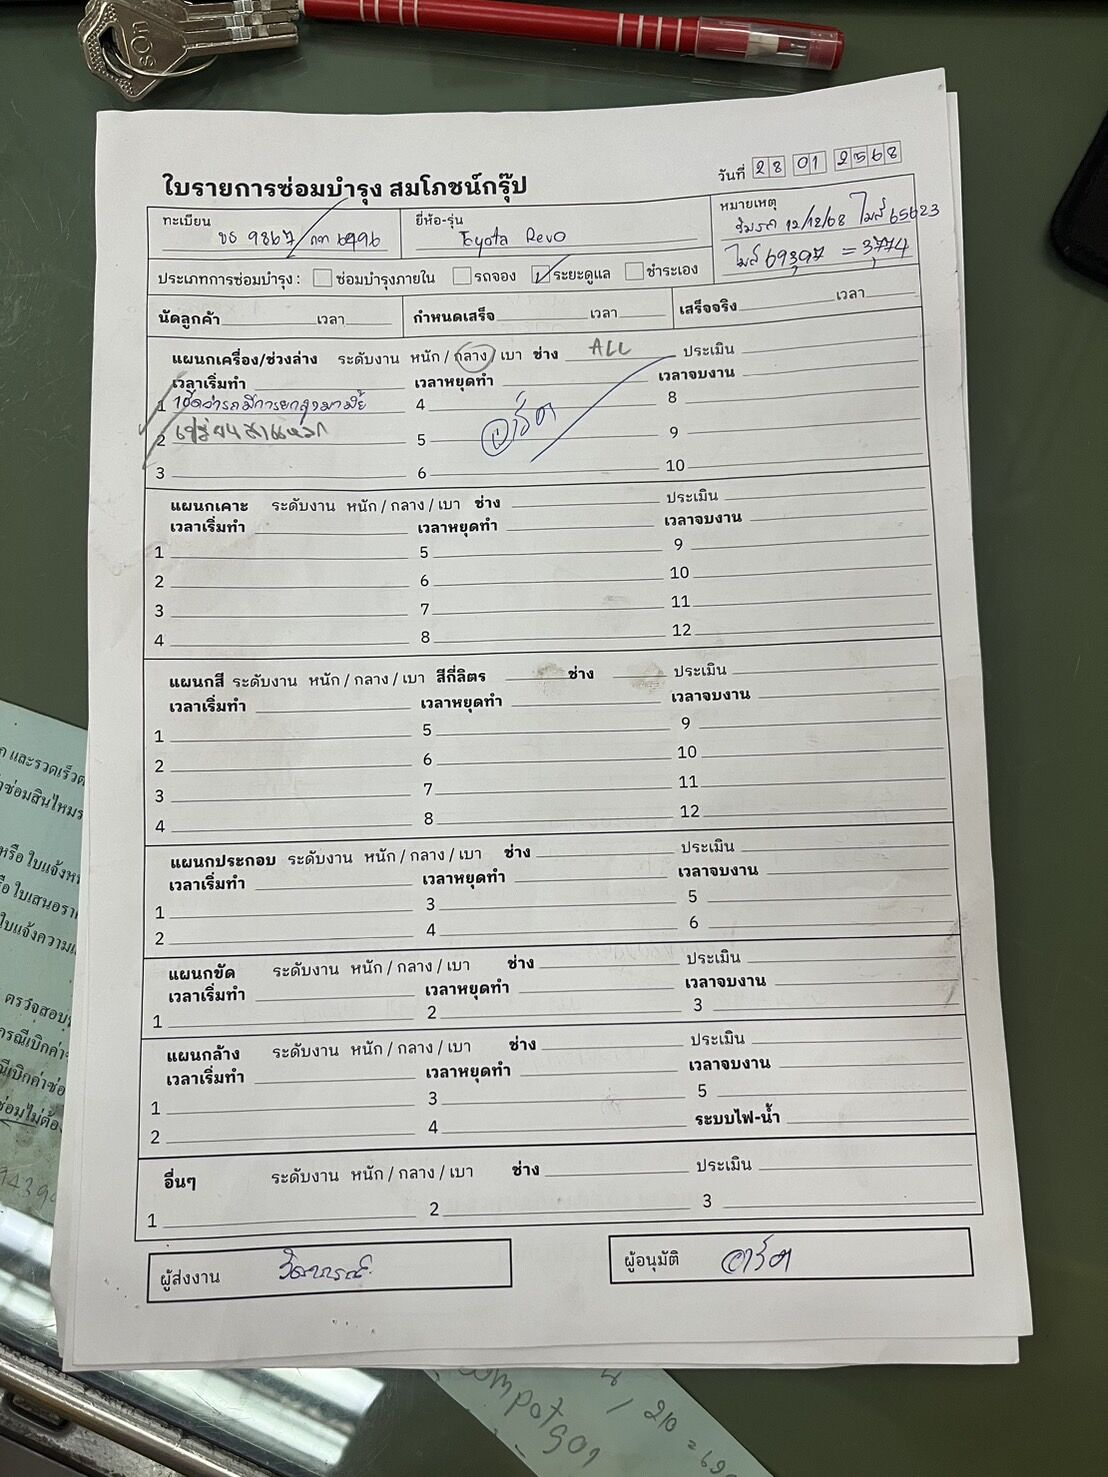 SOLO
วันที่ 28 01 2568
ใบรายการซ่อมบำรุง สมโภชน์กรุ๊ป
ทะเบียน บร 9867 / กท 6996
ยี่ห้อ-รุ่น Toyota Revo
หมายเหตุ
12/12/68 ไมล์ 65623
ไมล์ 69397 = 3,774
ประเภทการซ่อมบำรุง : ซ่อมบำรุงภายใน รถจอง ระยะดูแล ชำระเอง
นัดลูกค้า เวลา กำหนดเสร็จ เวลา เสร็จจริง เวลา
แผนกเครื่อง/ช่วงล่าง ระดับงาน หนัก / กลาง / เบา ช่าง ALL ประเมิน
เวลาเริ่มทำ เวลาหยุดทำ เวลาจบงาน
1 4 8
2 5 9
3 6 10
อาร์ต
แผนกเคาะ ระดับงาน หนัก / กลาง / เบา ช่าง ประเมิน
เวลาเริ่มทำ เวลาหยุดทำ เวลาจบงาน
1 5 9
2 6 10
3 7 11
4 8 12
แผนกสี ระดับงาน หนัก / กลาง / เบา สีกี่ลิตร ช่าง ประเมิน
เวลาเริ่มทำ เวลาหยุดทำ เวลาจบงาน
1 5 9
2 6 10
3 7 11
4 8 12
แผนกประกอบ ระดับงาน หนัก / กลาง / เบา ช่าง ประเมิน
เวลาเริ่มทำ เวลาหยุดทำ เวลาจบงาน
1 3 5
2 4 6
แผนกขัด ระดับงาน หนัก / กลาง / เบา ช่าง ประเมิน
เวลาเริ่มทำ เวลาหยุดทำ เวลาจบงาน
1 2 3
แผนกล้าง ระดับงาน หนัก / กลาง / เบา ช่าง ประเมิน
เวลาเริ่มทำ เวลาหยุดทำ เวลาจบงาน
1 3 5
2 4 ระบบไฟ-น้ำ
อื่นๆ ระดับงาน หนัก / กลาง / เบา ช่าง ประเมิน
1 2 3
ผู้ส่งงาน
ผู้อนุมัติ อาร์ต
และรวดเร็ว
หรือ ใบแจ้ง
ใบแจ้งความ
ตรวจสอบ